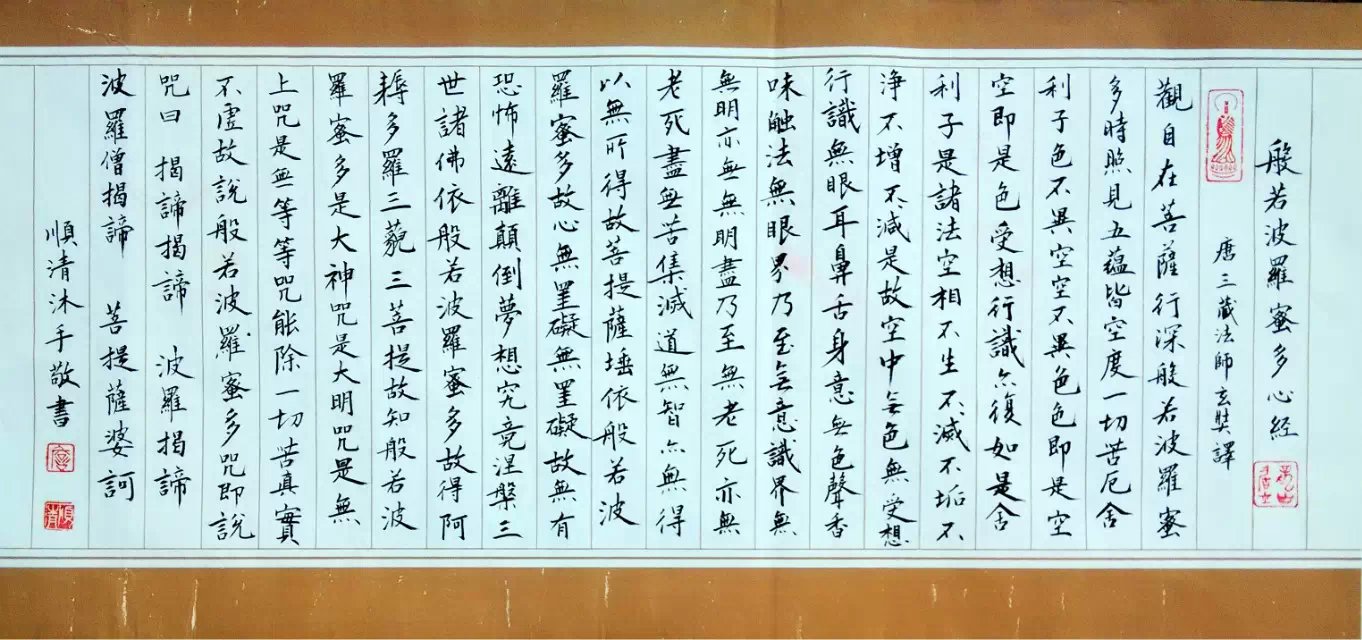 般若波羅蜜多心经
唐三藏法師玄奘譯
觀自在菩薩行深般若波羅蜜
多時照見五蕴皆空度一切苦厄舍
利子色不異空空不異色色即是空
空即是色受想行識亦復如是舍
利子是諸法空相不生不滅不垢不
浄不增不減是故空中無色無受想
行識無眼耳鼻舌身意無色聲香
味触法無眼界乃至無意識界無
無明亦無無明盡乃至無老死亦無
老死盡無苦集滅道無智亦無得
以無所得故菩提薩埵依般若波
羅蜜多故心無罣礙無罣礙故無有
恐怖遠離顛倒夢想究竟涅槃三
世諸佛依般若波羅蜜多故得阿
耨多羅三藐三菩提故知般若波
羅蜜多是大神咒是大明咒是無
上咒是無等等咒能除一切苦真實
不虛故說般若波羅蜜多咒即說
咒曰 揭諦揭諦 波羅揭諦
波羅僧揭諦 菩提薩婆訶
順清沐手敬書